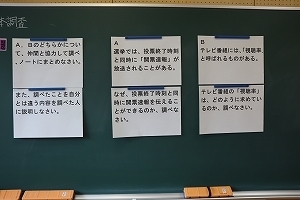 本調査
A、Bのどちらかについ
て、仲間と協力して調べ
、ノートにまとめなさい。
また、調べたことを自分
とは違う内容を調べた人
に説明しなさい。
A
選挙では、投票終了時刻
と同時に「開票速報」が
放送されることがある。
なぜ、投票終了時刻と同
時に開票速報を伝えるこ
とができるのか、調べな
さい。
B
テレビ番組には、「視聴率」
と呼ばれるものがある。
テレビ番組の「視聴率」
は、どのように求めてい
るのか、調べなさい。